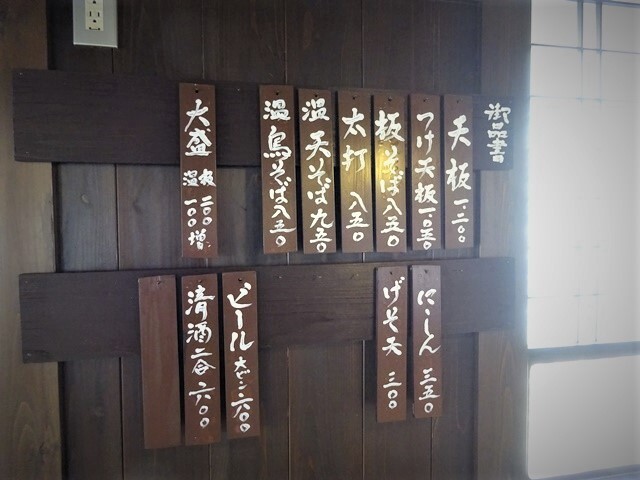 御品書
天板 一一三〇
つけ天板 一〇五〇
板そば 八五〇
太打 八五〇
温 天そば 九五〇
温 鳥そば 八五〇
大盛 板 二〇〇 温 一〇〇 増
にしん 三五〇
げそ天 三〇〇
ビール 大ビン 六〇〇
清酒 二合 六〇〇